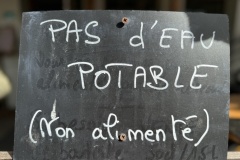 PAS d'EAU
POTABLE
(Non alimenté)